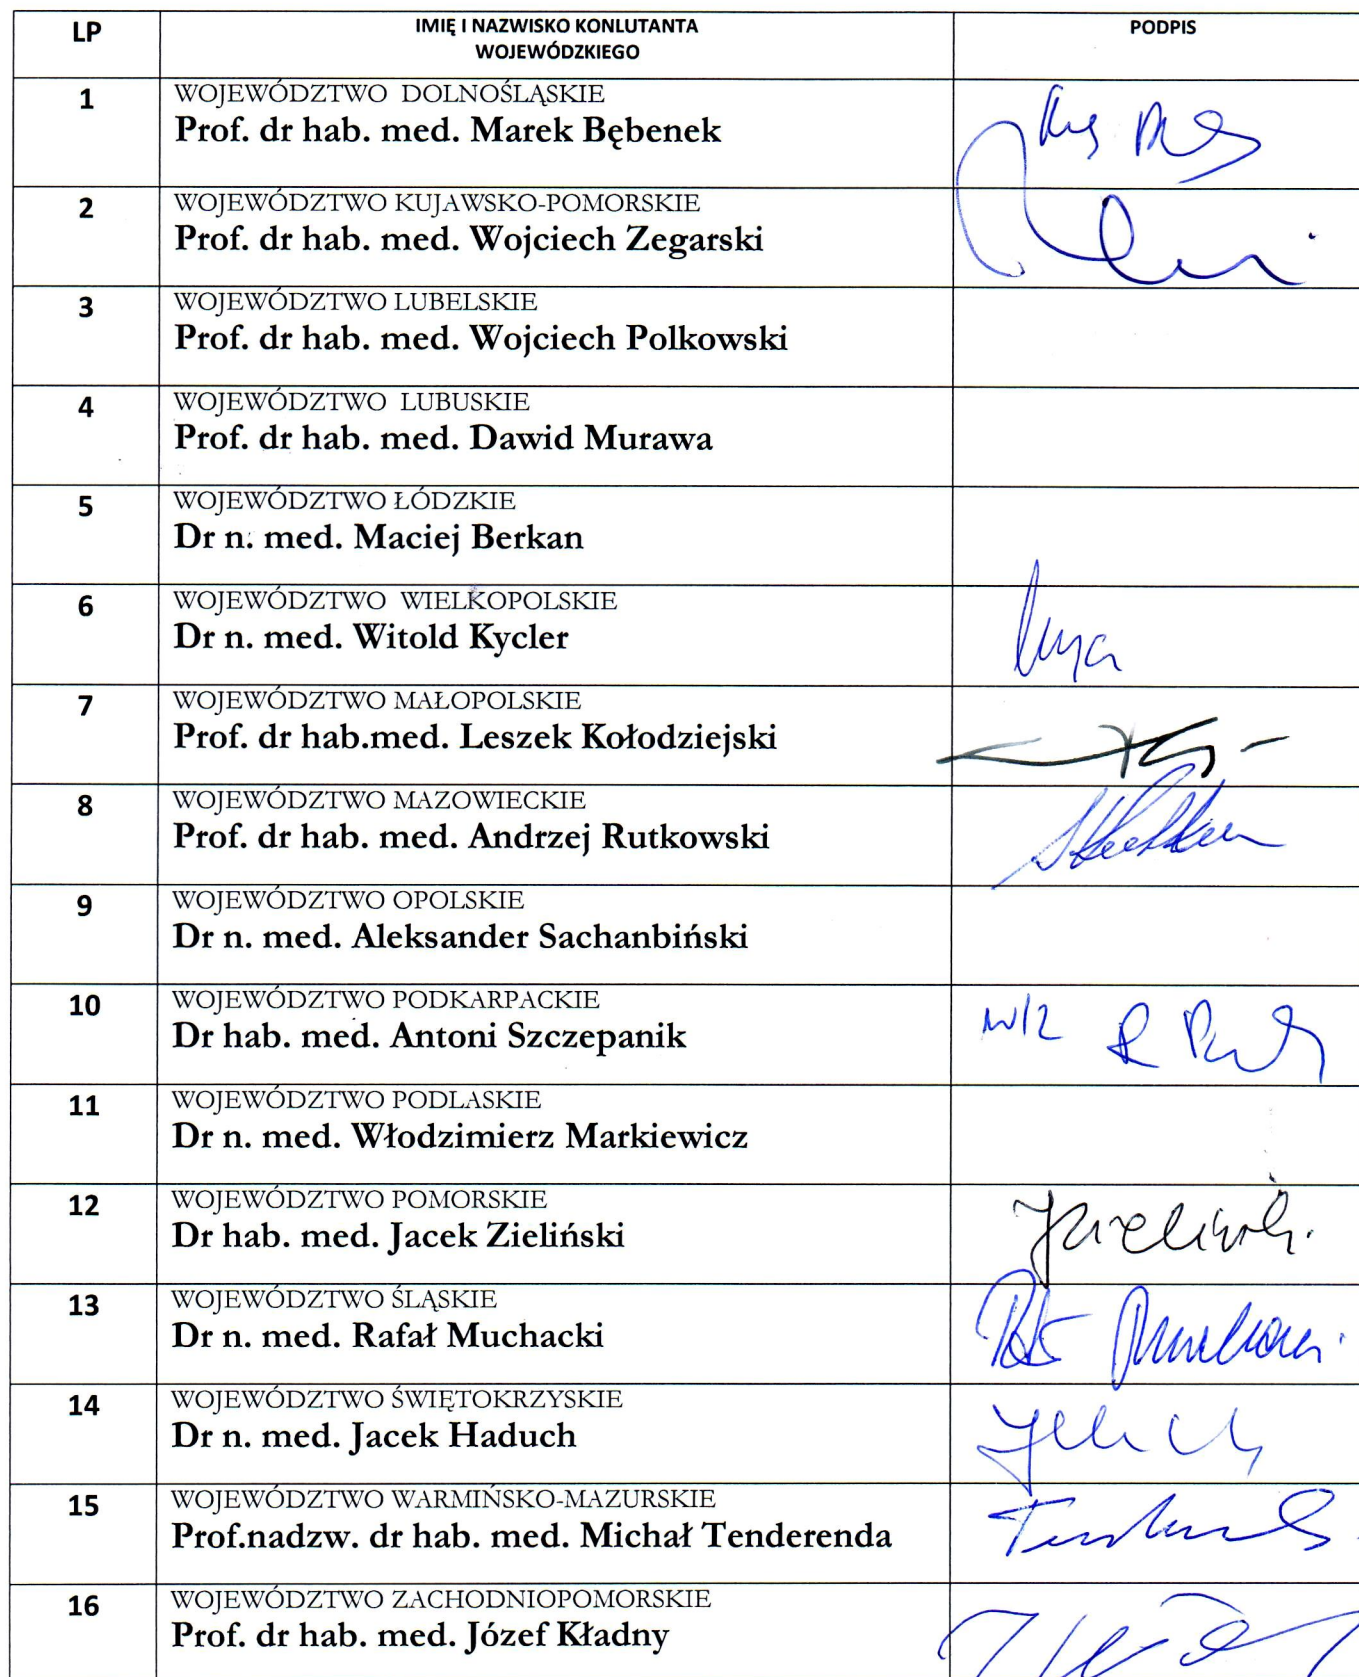 LP IMIĘ I NAZWISKO KONLUTANTA PODPIS
WOJEWÓDZKIEGO
1 WOJEWÓDZTWO DOLNOŚLĄSKIE
Prof. dr hab. med. Marek Bębenek
2 WOJEWÓDZTWO KUJAWSKO-POMORSKIE
Prof. dr hab. med. Wojciech Zegarski
3 WOJEWÓDZTWO LUBELSKIE
Prof. dr hab. med. Wojciech Polkowski
4 WOJEWÓDZTWO LUBUSKIE
Prof. dr hab. med. Dawid Murawa
5 WOJEWÓDZTWO ŁÓDZKIE
Dr n. med. Maciej Berkan
6 WOJEWÓDZTWO WIELKOPOLSKIE
Dr n. med. Witold Kycler
7 WOJEWÓDZTWO MAŁOPOLSKIE
Prof. dr hab.med. Leszek Kołodziejski
8 WOJEWÓDZTWO MAZOWIECKIE
Prof. dr hab. med. Andrzej Rutkowski
9 WOJEWÓDZTWO OPOLSKIE
Dr n. med. Aleksander Sachanbiński
10 WOJEWÓDZTWO PODKARPACKIE
Dr hab. med. Antoni Szczepanik w/z
11 WOJEWÓDZTWO PODLASKIE
Dr n. med. Włodzimierz Markiewicz
12 WOJEWÓDZTWO POMORSKIE
Dr hab. med. Jacek Zieliński
13 WOJEWÓDZTWO ŚLĄSKIE
Dr n. med. Rafał Muchacki
14 WOJEWÓDZTWO ŚWIĘTOKRZYSKIE
Dr n. med. Jacek Haduch
15 WOJEWÓDZTWO WARMIŃSKO-MAZURSKIE
Prof.nadzw. dr hab. med. Michał Tenderenda
16 WOJEWÓDZTWO ZACHODNIOPOMORSKIE
Prof. dr hab. med. Józef Kładny